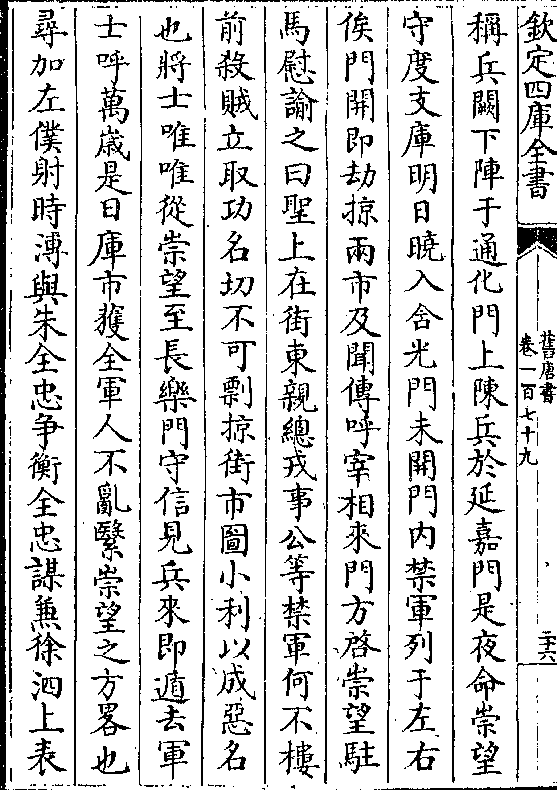 欽定四庫全書
舊唐書
卷一百七十九
二十六
稱兵闕下陣于通化門上陳兵於延嘉門是夜命崇望
守度支庫明日曉入含光門未開門内禁軍列于左右
俟門開即劫掠兩市及聞傳呼宰相來門方啓崇望駐
馬慰諭之曰聖上在街東親總戎事公等禁軍何不樓
前殺賊立取功名切不可剽掠街市圖小利以成惡名
也將士唯唯從崇望至長樂門守信見兵來即遁去軍
士呼萬歳是日庫市獲全軍人不亂繄崇望之方畧也
尋加左僕射時溥與朱全忠争衡全忠謀兼徐泗上表